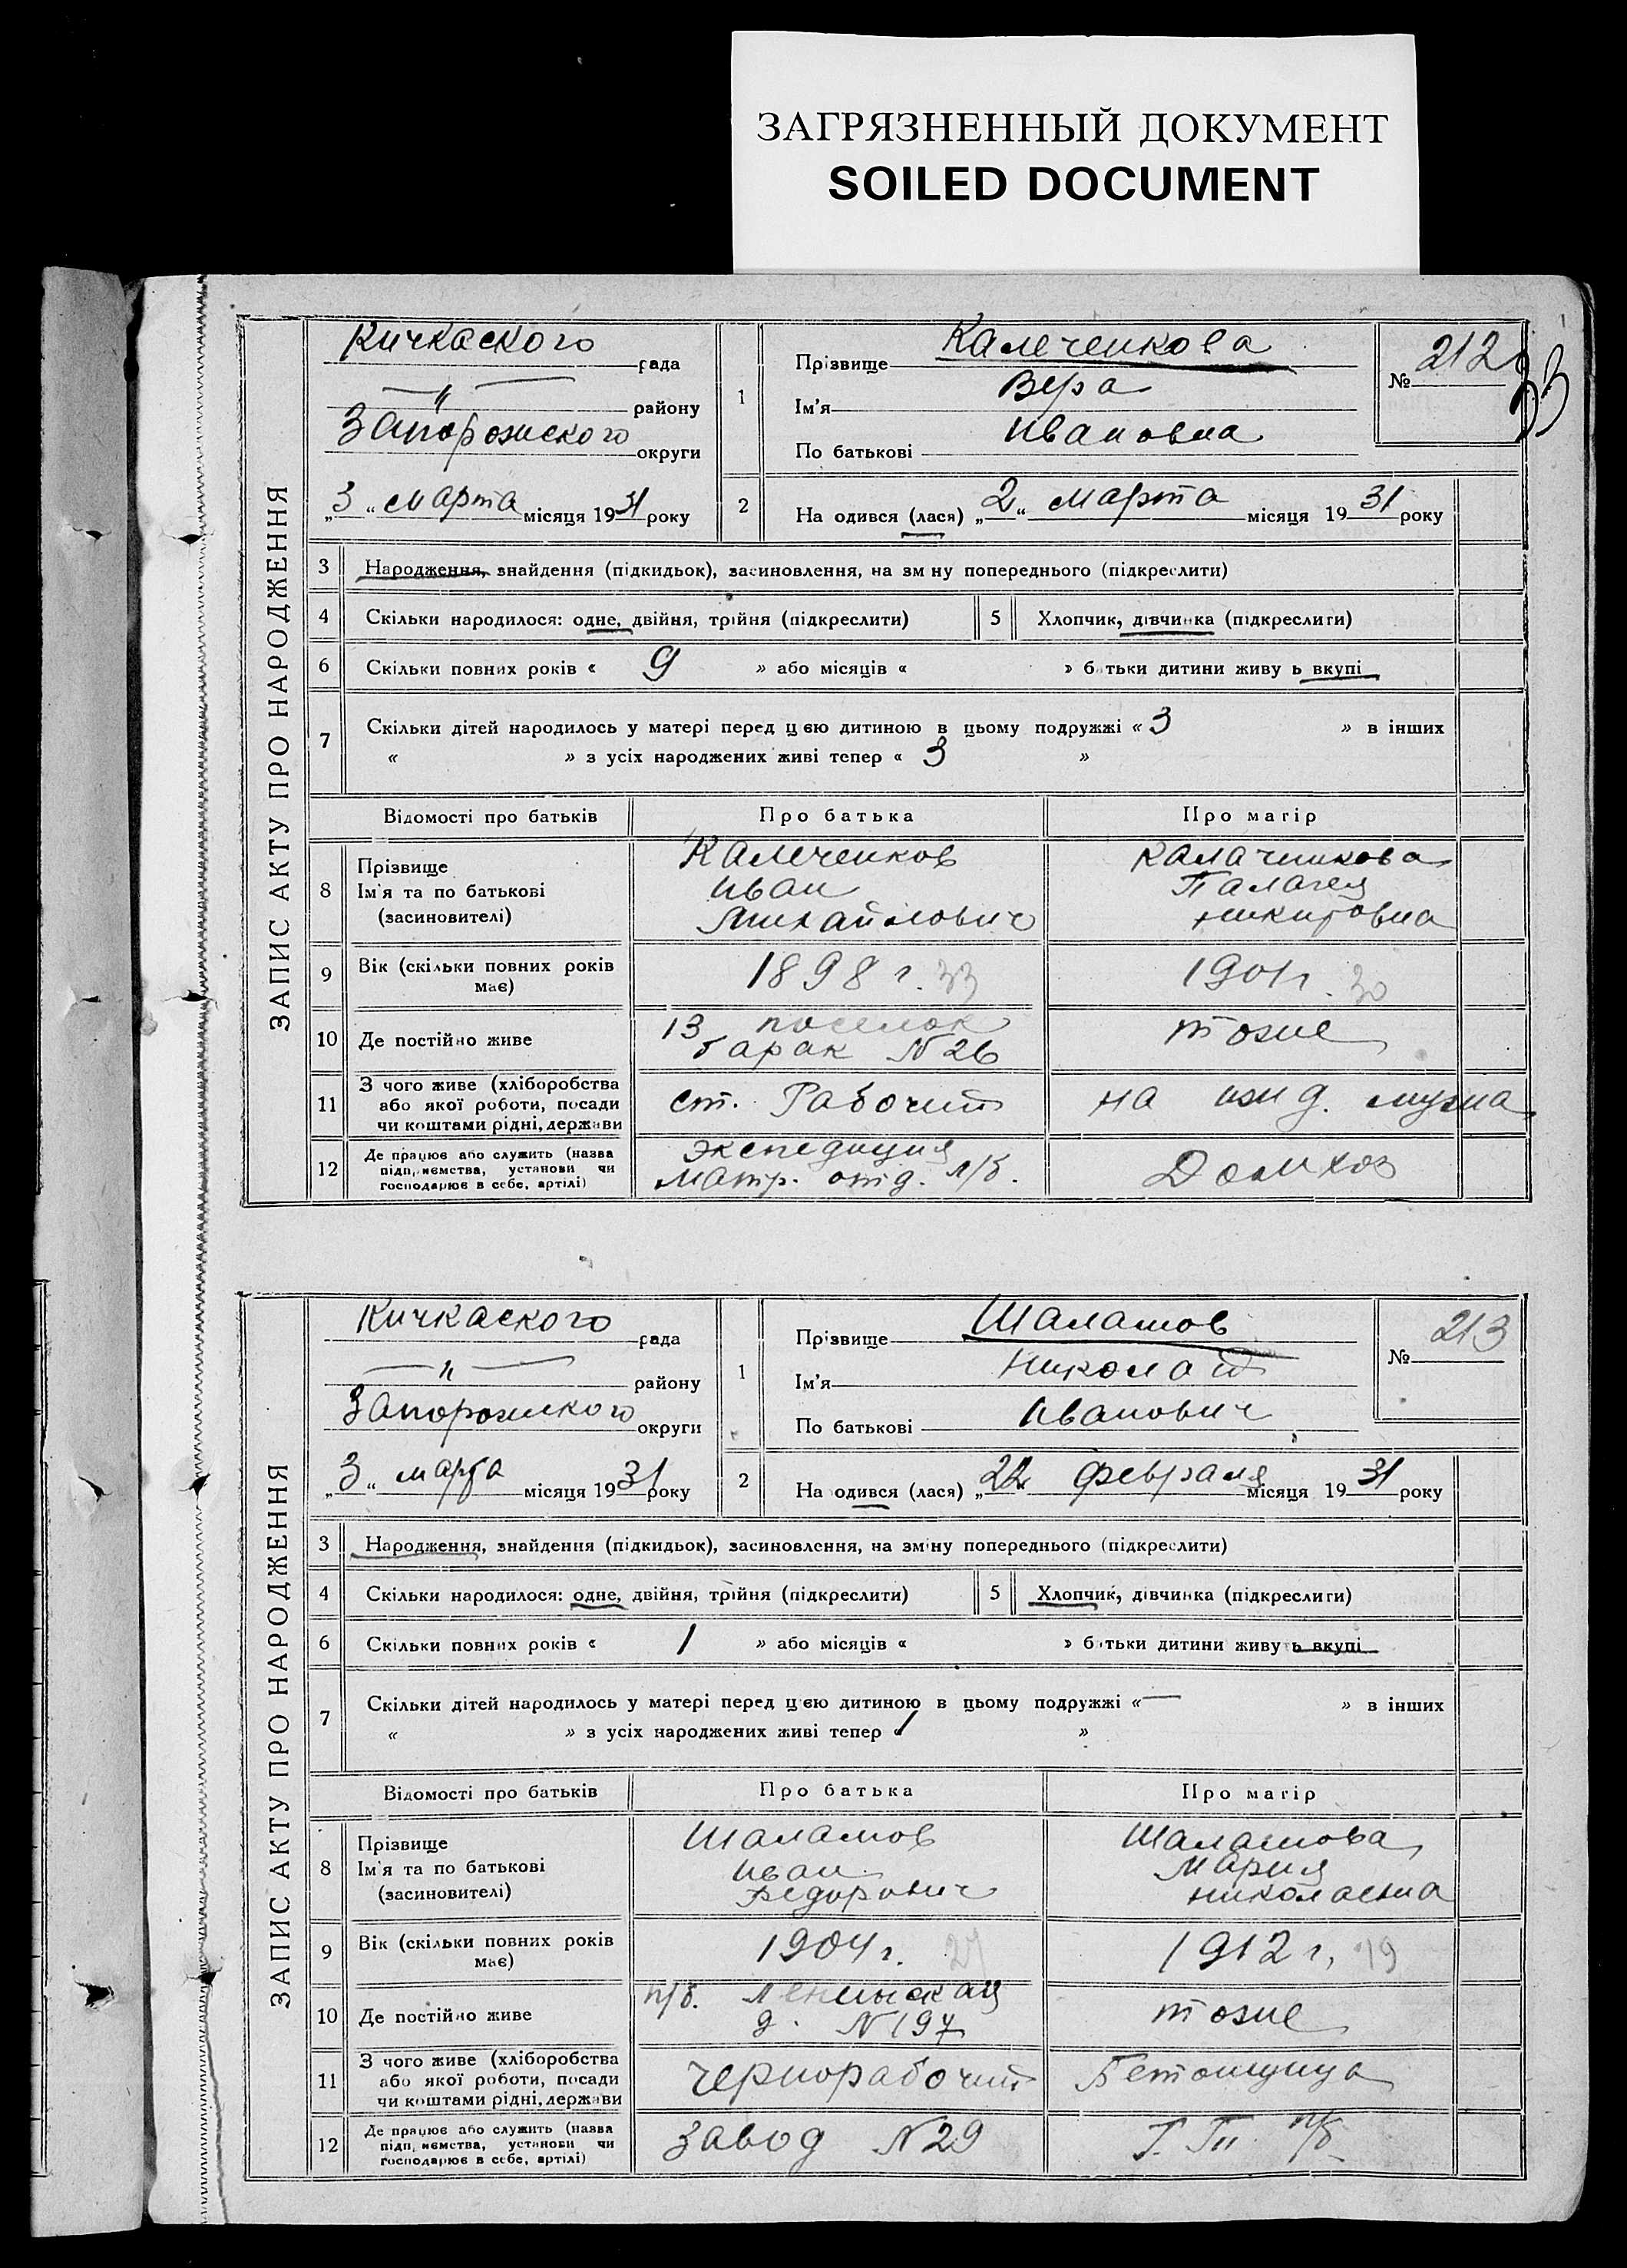 ЗАГРЯЗНЕННЫЙ ДОКУМЕНТ
SOILED DOCUMENT
33
ЗАПИС АКТУ ПРО НАРОДЖЕННЯ
Кичкаского рада
—〃— району
Запорожского округи
„3“ марта місяця 1931 року
1
Прізвище Калеченкова
Ім'я Вера
По батькові Ивановна
№ 212
2
На одився (лася) „2“ марта місяця 1931 року
3 Народження, знайдення (підкидьок), засиновлення, на зм ну попереднього (підкреслити)
4 Скільки народилося: одне, двійня, трійня (підкреслити) 5 Хлопчик, дівчинка (підкреслити)
6 Скільки повних років « 9 » або місяців « » б тьки дитини живу ь вкупі
7 Скільки дітей народилось у матері перед цією дитиною в цьому подружжі « 3 » в інших
« » з усіх народжених живі тепер « 3 »
Відомості про батьків Про батька Про матір
8 Прізвище
Ім'я та по батькові
(засиновителі)
Калеченков
Иван
Михайлович
Калаченкова
Палагея
Никитовна
9 Вік (скільки повних років
має)
1898 г. 33
1901 г. 30
10 Де постійно живе
13 поселок
барак N 26
тоже
11 З чого живе (хліборобства
або якої роботи, посади
чи коштами рідні, держави
ст. Рабочий
на ижд. мужа
12 Де працює або служить (назва
підп, иємства, установи чи
господарює в себе, артілі)
Экспедиция
Матр. отд. л/б.
Домхоз
ЗАПИС АКТУ ПРО НАРОДЖЕННЯ
Кичкаского рада
—〃— району
Запорожского округи
„3“ марта місяця 1931 року
1
Прізвище Шалашов
Ім'я Николай
По батькові Иванович
№ 213
2
На одився (лася) „22“ февраля місяця 1931 року
3 Народження, знайдення (підкидьок), засиновлення, на зміну попереднього (підкреслити)
4 Скільки народилося: одне, двійня, трійня (підкреслити) 5 Хлопчик, дівчинка (підкреслити)
6 Скільки повних років « 1 » або місяців « » б тьки дитини живу ь вкупі
7 Скільки дітей народилось у матері перед цією дитиною в цьому подружжі « — » в інших
« » з усіх народжених живі тепер « 1 »
Відомості про батьків Про батька Про матір
8 Прізвище
Ім'я та по батькові
(засиновителі)
Шалашов
Иван
Федорович
Шалашова
Мария
Николаевна
9 Вік (скільки повних років
має)
1904 г. 27
1912 г. 19
10 Де постійно живе
п/б. Ленинская
д. N 197
тоже
11 З чого живе (хліборобства
або якої роботи, посади
чи коштами рідні, держави
Чернорабочий
Бетонщица
12 Де працює або служить (назва
підп, иємства, установи чи
господарює в себе, артілі)
Завод N 29
п/б